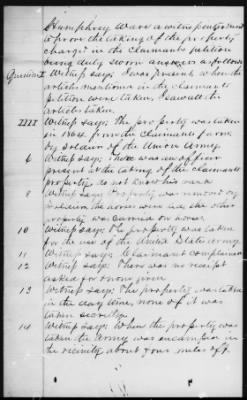 Humphrey Ware a witness
to prove the taking of the property
charged in the Claimants petition
being duly sworn answers as follows
Question 1 Witness says: I was present when the
articles mentioned in the claimants
petition were taken, I saw all the
articles taken
IIII Witness says: The property was taken
in 1862 from the Claimants farm
by soldiers of the Union Army.
6 Witness says: There was an officer
present at the taking of the claimants
property, do not know his rank
8 Witness says: Property was removed by
soldiers, the horses were led, the other
property was carried on horses
10 Witness says: The property was taken
for the use of the United States Army
11 Witness says: Claimant complained
12 Witness says: There was no receipt
asked for or none given
13 Witness says: The property was taken
in the day time, none of it was
taken secretly.
14 Witness says: When the property was
taken the Army was encamped in
the vicinity about four miles off.